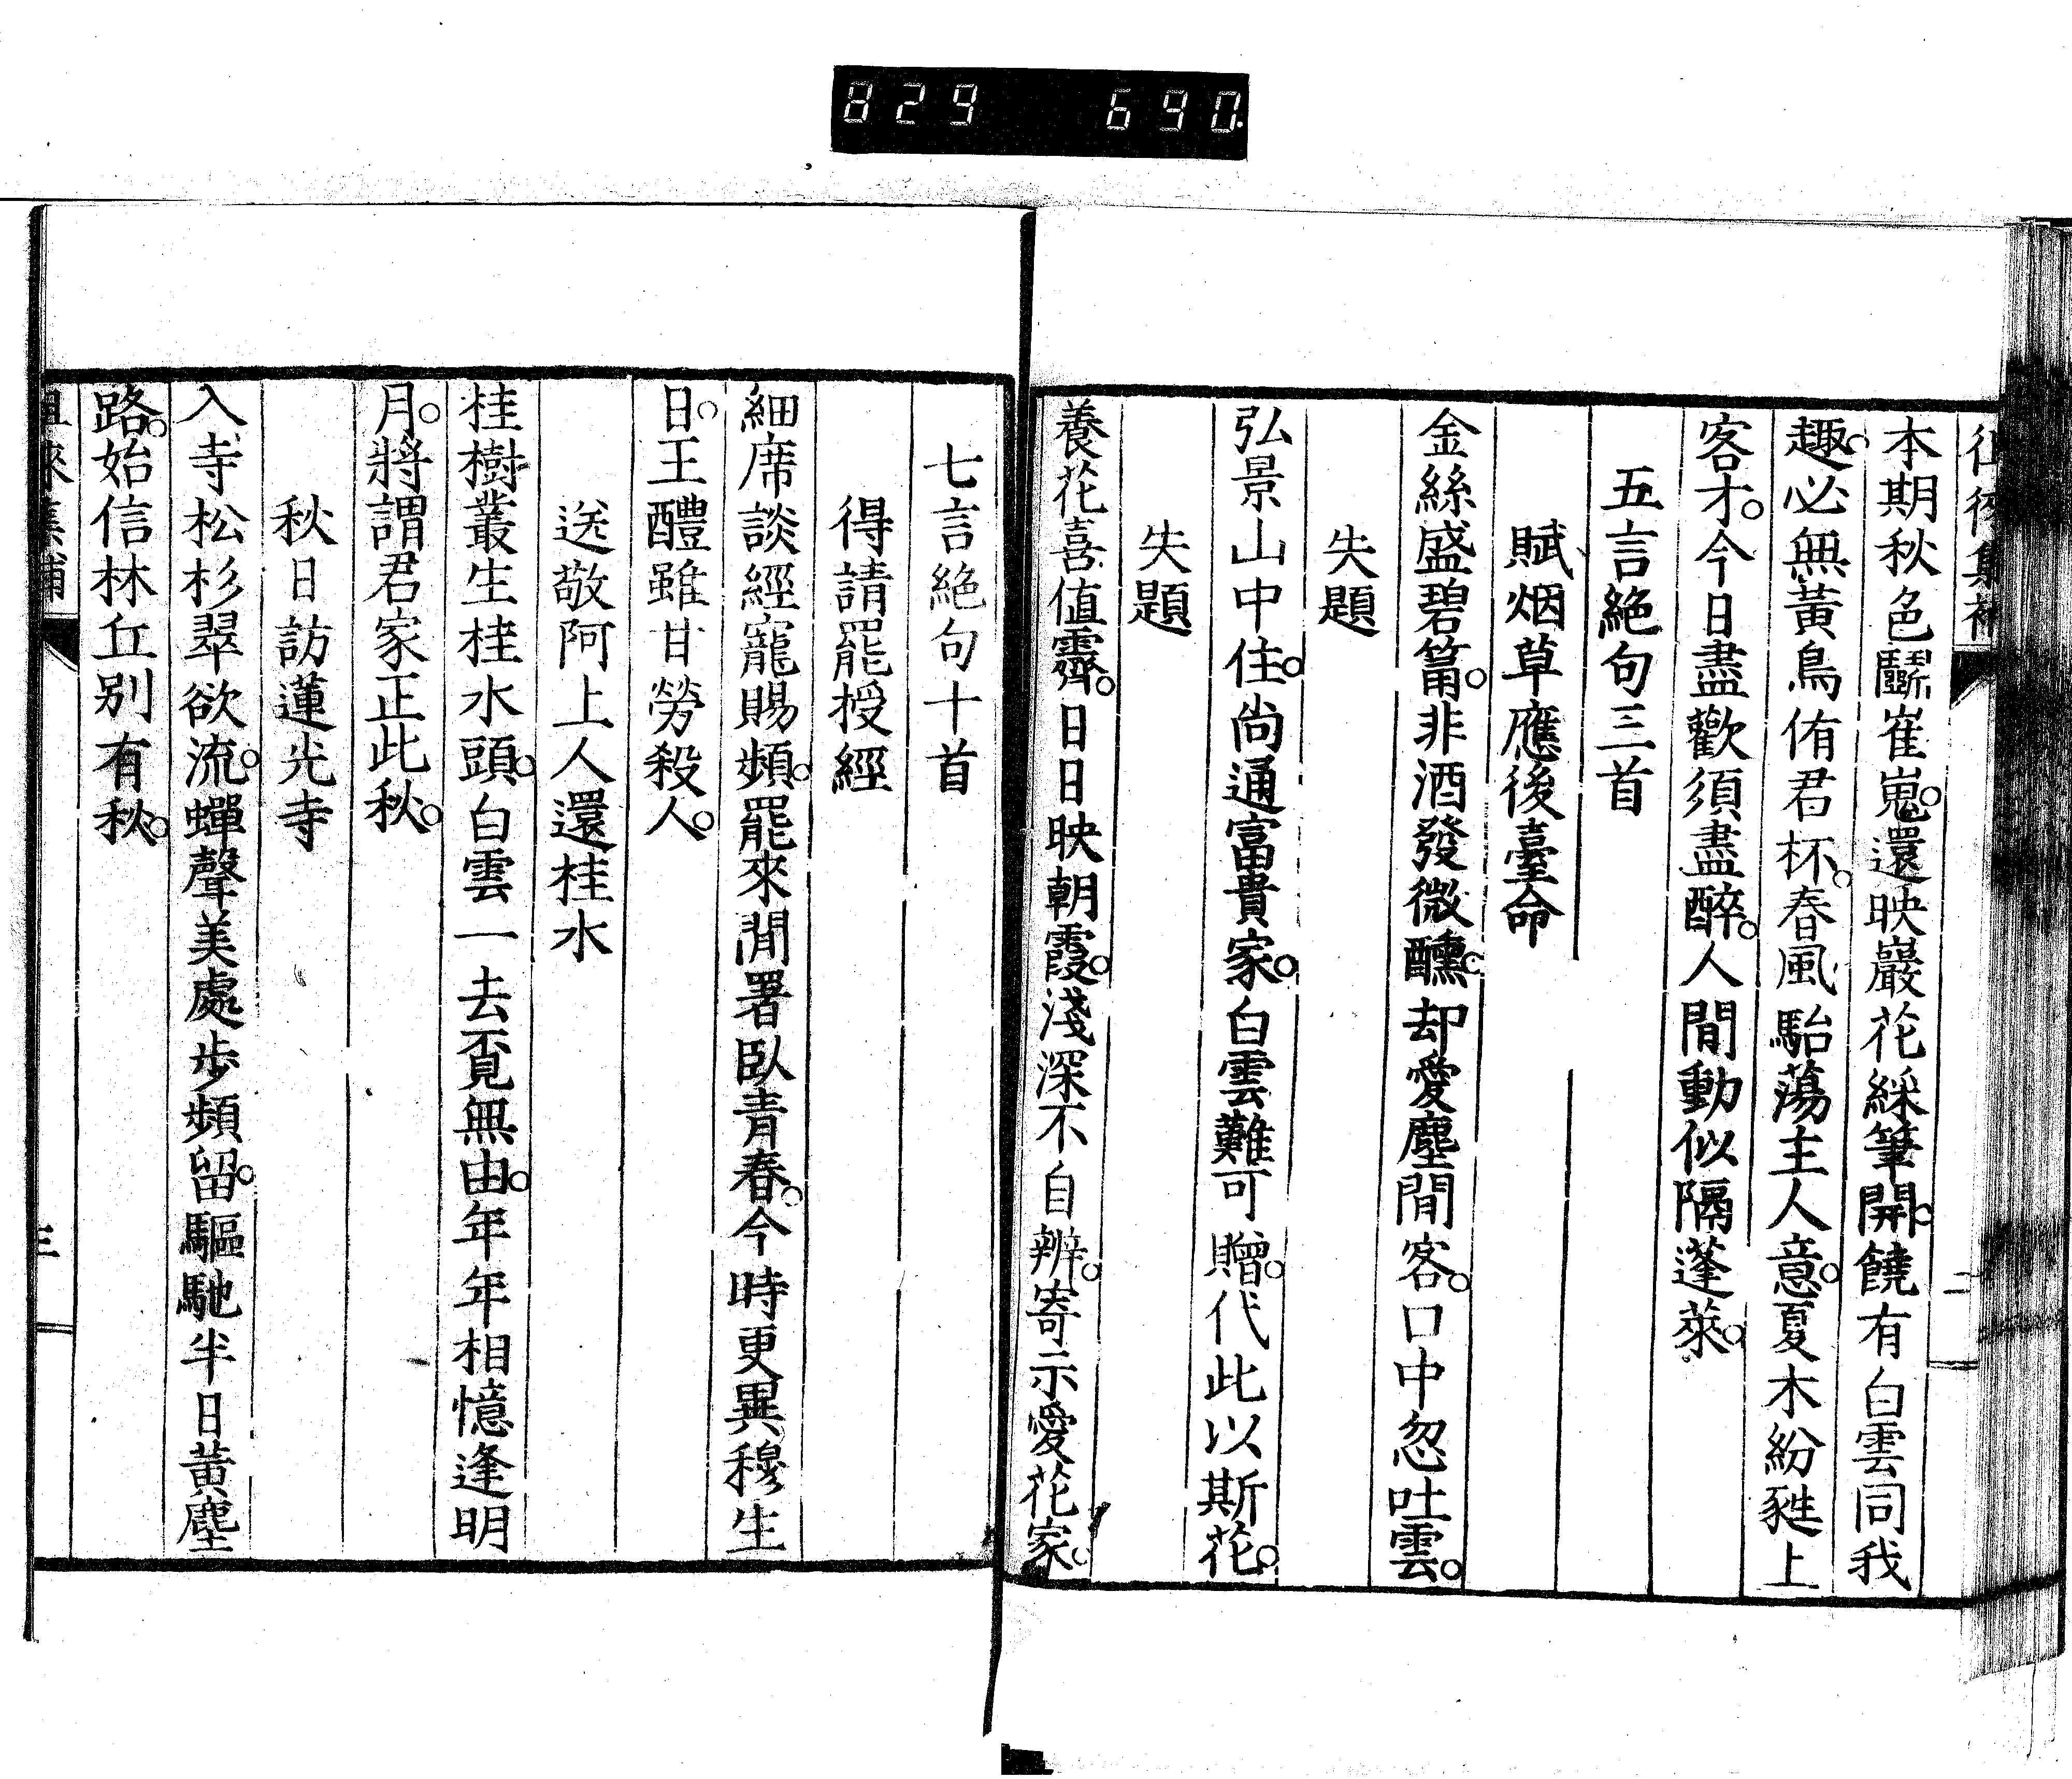 829 690.
本期秋色鬭崔嵬。還映巖花綵筆開。饒有白雲同我
趣。必無黃鳥侑君杯。春風駘蕩主人意。夏木紛㽔上
客才。今日盡歡須盡醉。人間動似隔蓬萊。
五言絕句三首
賦烟草應後臺命
金絲盛碧筩。非酒發微醺。却愛塵間客。口中忽吐雲。
失題
弘景山中住。尚通富貴家。白雲難可贈。代此以斯花。
失題
養花喜值霽。日日映朝霞。淺深不自辨。寄示愛花家。
二
七言絕句十首
得請罷授經
細席談經寵賜頻。罷來閒署臥青春。今時更異穆生
日。王醴雖甘勞殺人。
送敬阿上人還桂水
桂樹叢生桂水頭。白雲一去覓無由。年年相憶逢明
月。將謂君家正此秋。
秋日訪蓮光寺
入寺松杉翠欲流。蟬聲美處步頻留。驅馳半日黃塵
路。始信林丘別有秋。
三